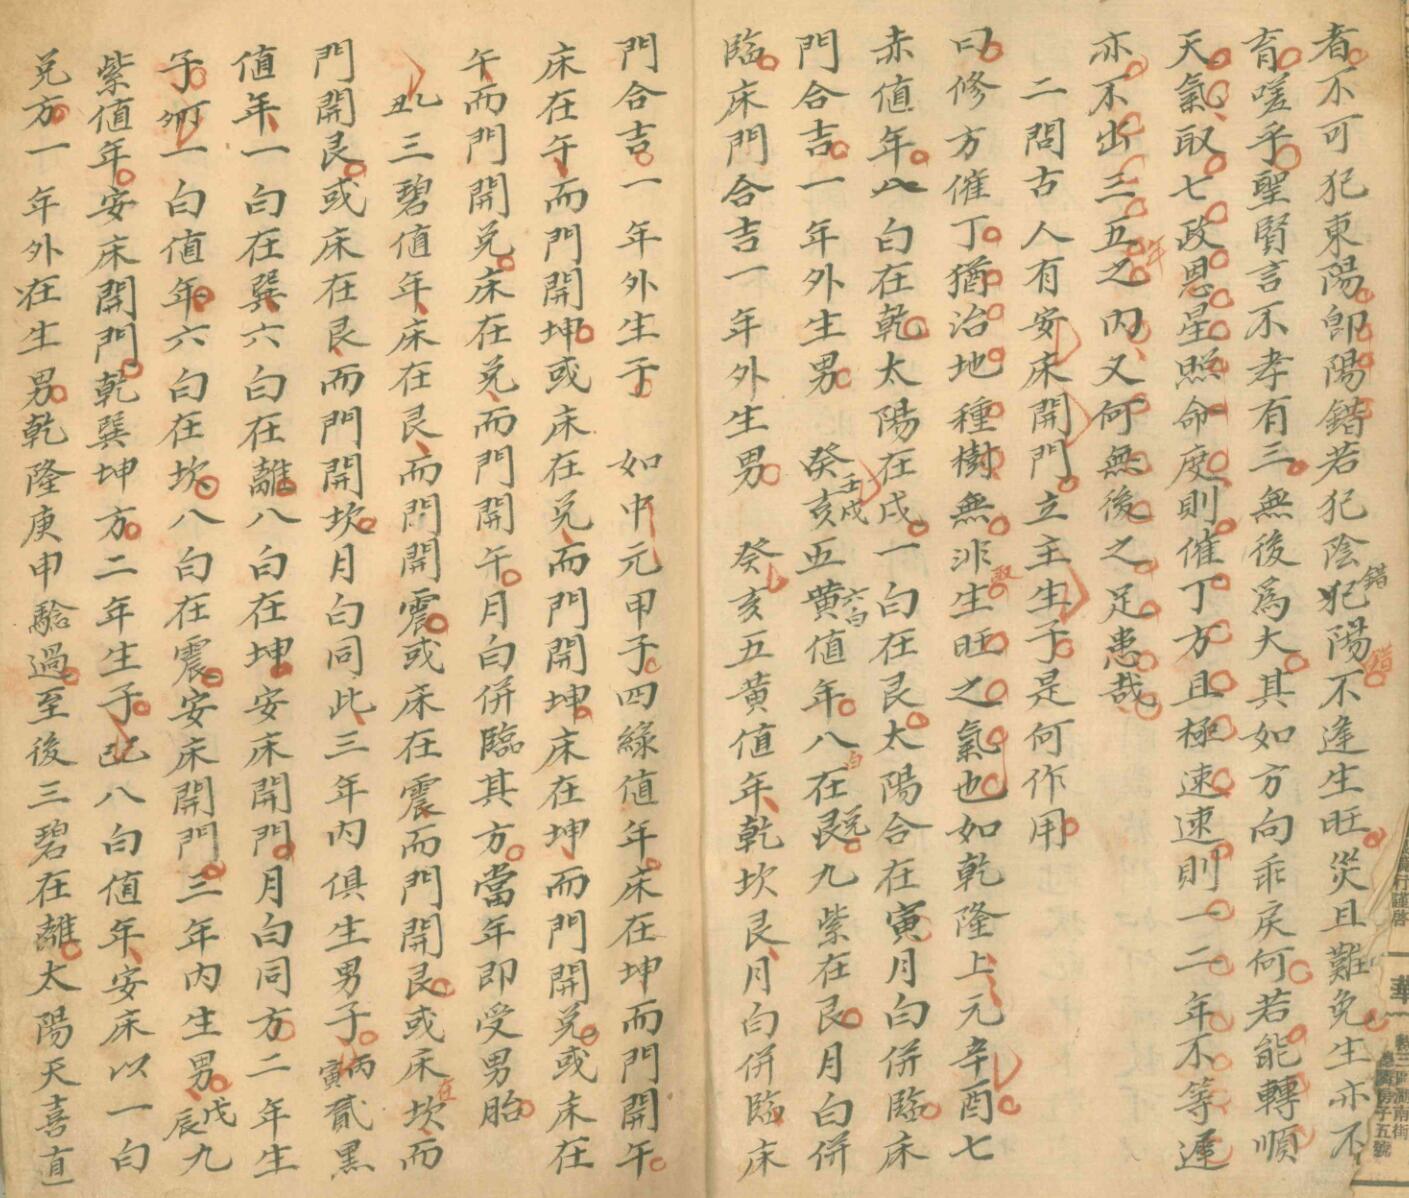 者不可犯東陽卽陽錯若犯陰犯陽不逢生旺災且難免生亦不
錯
錯
育嗟乎聖賢言不孝有三無後爲大其如方向乖戾何若能轉順
天氣取七政恩星照命度則催丁方且極速速則一二年不等遲
亦不出三五之內又何無後之足患哉
年
二問古人有安床開門立主生子是何作用
曰修方催丁猶治地種樹無非生旺之氣也如乾隆上元辛酉七
取
赤值年八白在乾太陽在戌一白在艮太陽合在寅月白併臨床
門合吉一年外生男 癸亥五黃值年八在艮九紫在艮月白併
壬戌
六白
白
兌
臨床門合吉一年外生男 癸亥五黃值年乾坎艮月白併臨床
門合吉一年外生子 如中元甲子四綠值年床在坤而門開午
床在午而門開坤或床在兌而門開坤床在坤而門開兌或床在
午而門開兌床在兌而門開午月白併臨其方當年即受男胎
乙丑三碧值年床在艮而門開震或床在震而門開艮或床坎而
在
門開艮或床在艮而門開坎月白同此三年內俱生男子丙寅貳黑
值年一白在巽六白在離八白在坤安床開門月白同方二年生
子 一白值年六白在坎八白在震安床開門三年內生男戊辰九
紫值年安床開門乾巽坤方二年生子己巳八白值年安床以一白
兌方一年外在生男乾隆庚申驗過至後三碧在離太陽天喜直
行謹啓
華
轉三叩湖南街
房子五號